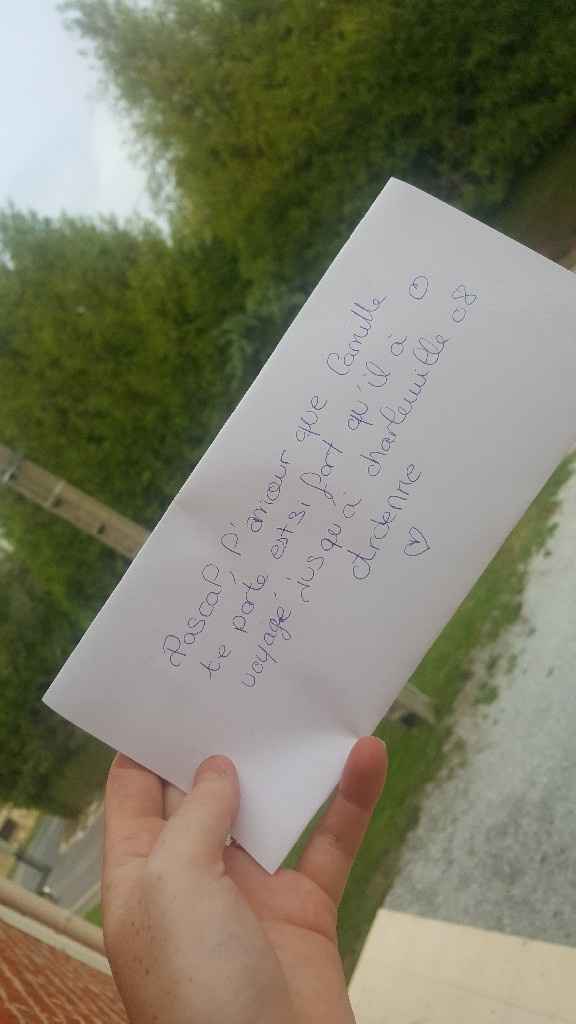 Pascal, l'amour que Camille
te porte est si fort qu'il à
voyagé jusqu'à charleuville 08
Ardenne